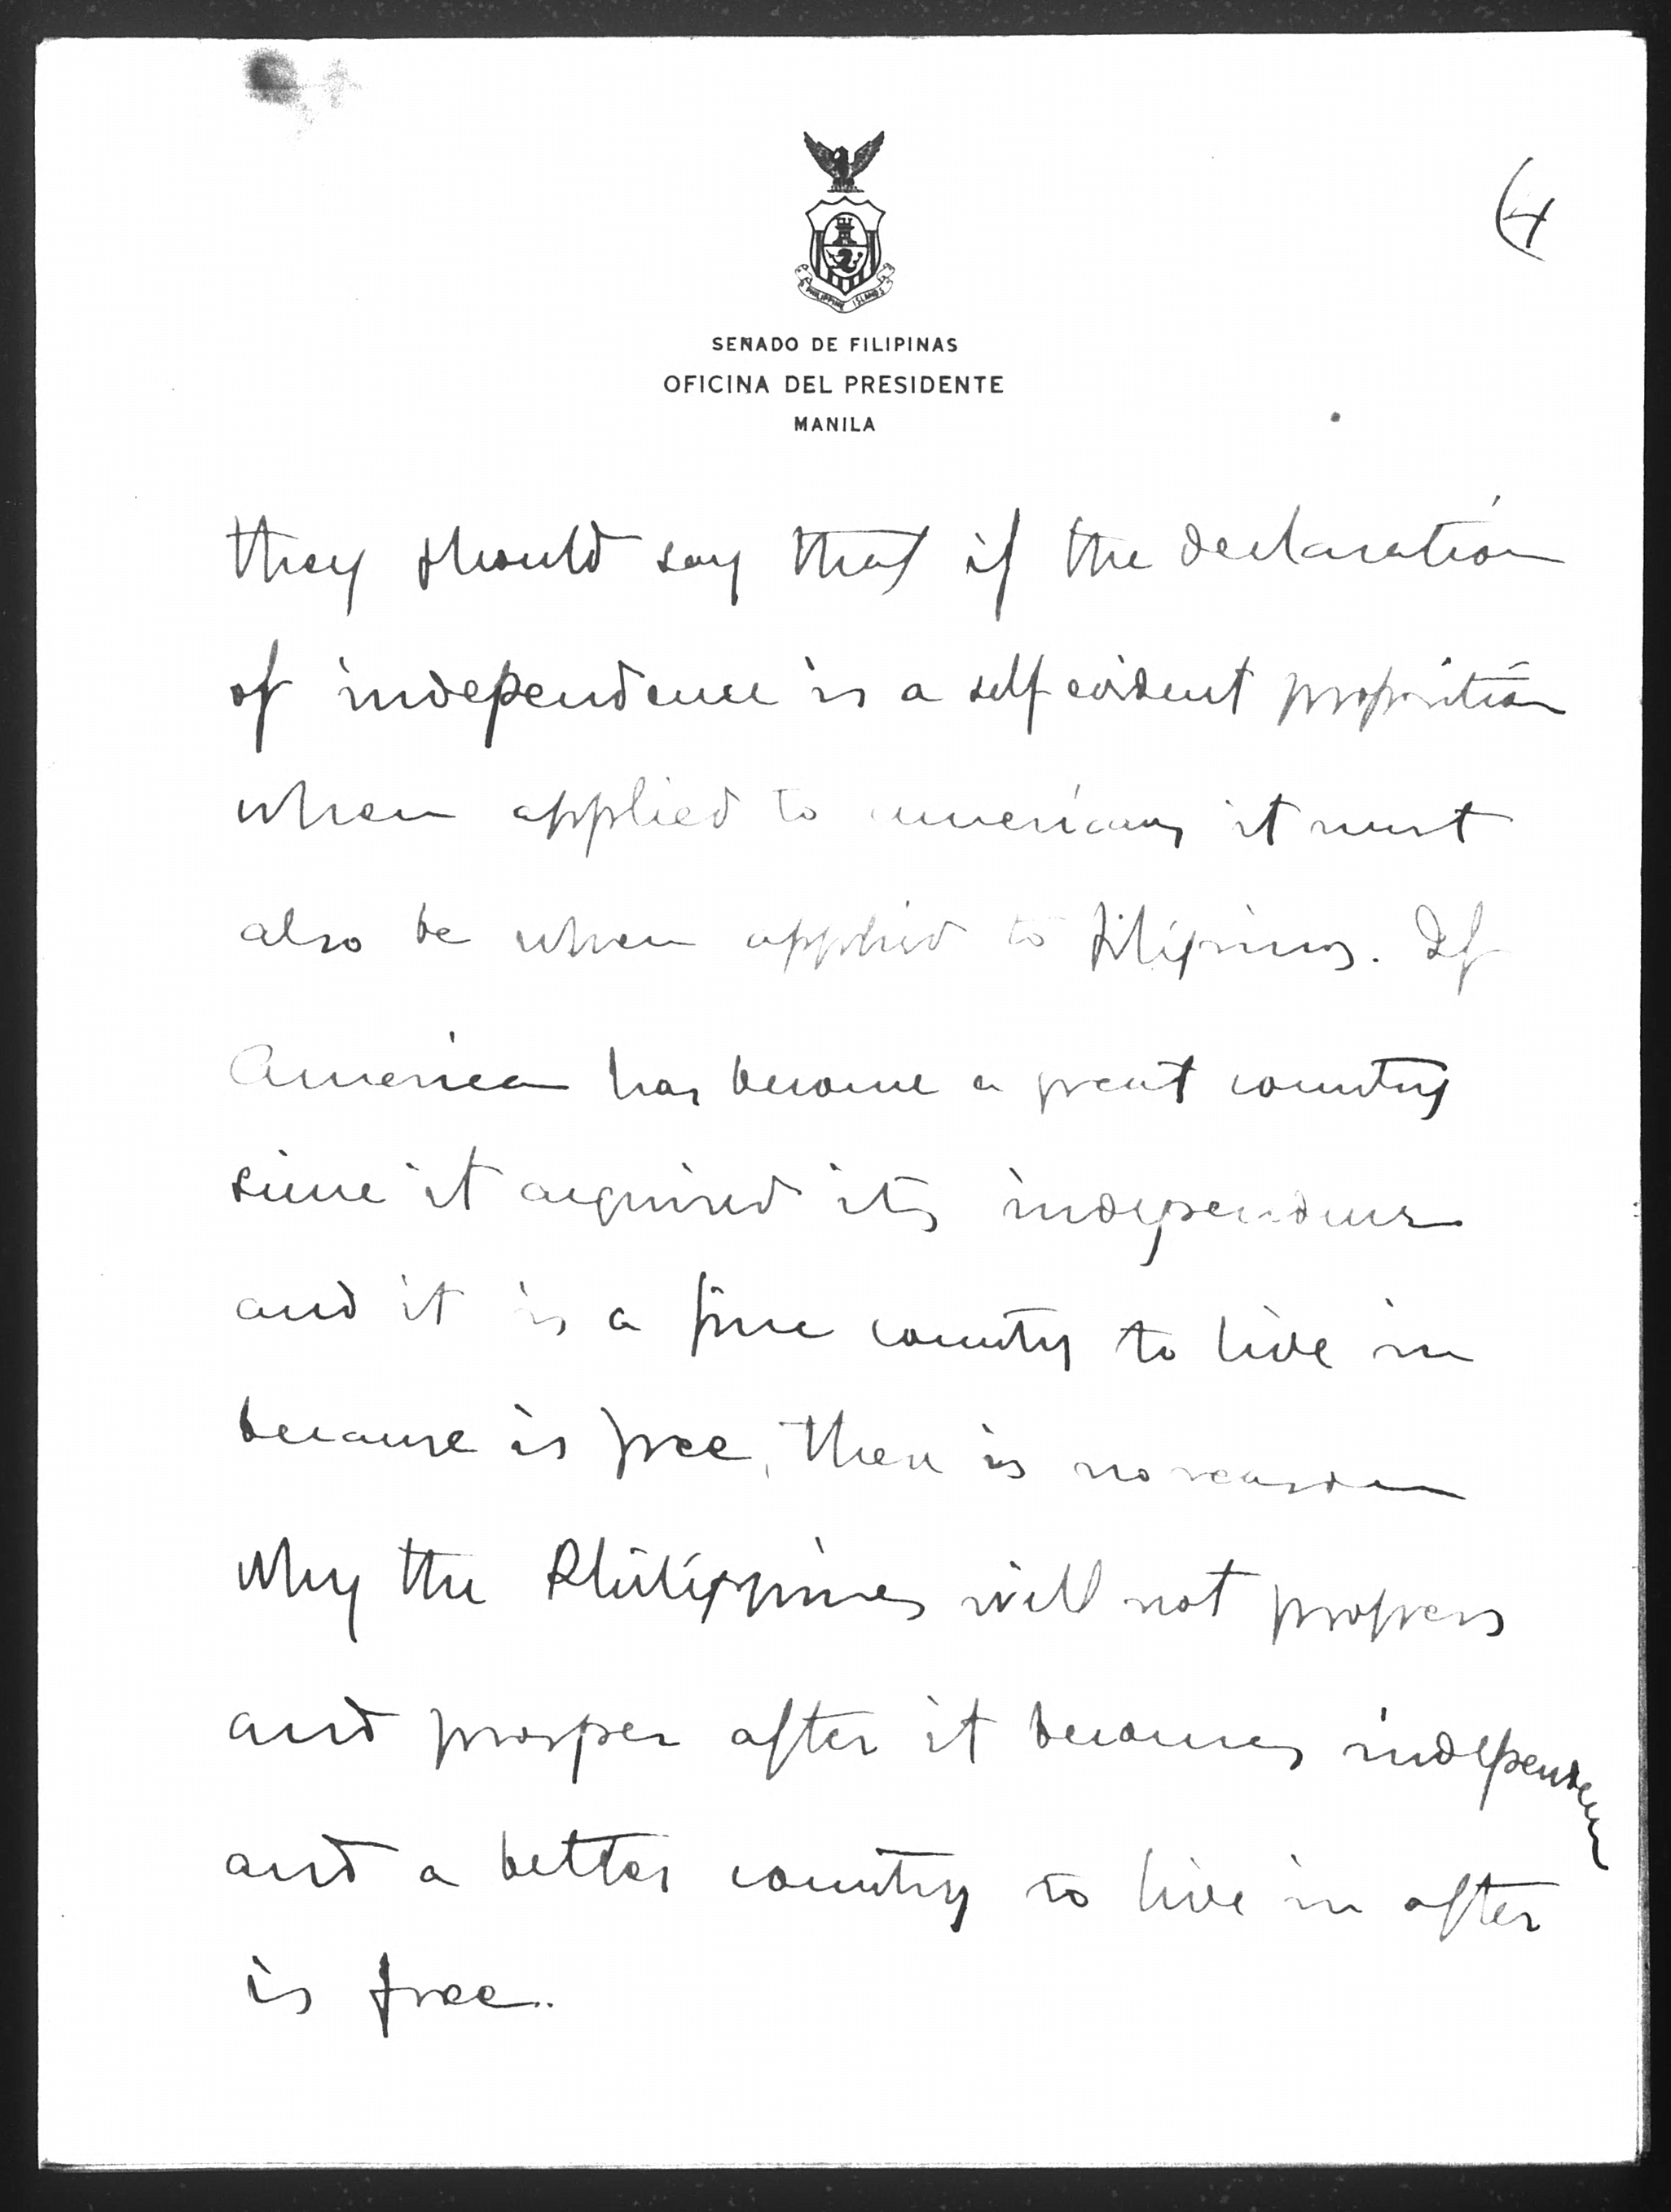 (4
PHILIPPINE ISLANDS
SENADO DE FILIPINAS
OFICINA DEL PRESIDENTE
MANILA
they should say that if the declaration
of independence is a self evident proposition
when applied to americans it must
also be when applied to filipinos. If
America has become a great country
since it acquired its independence
and it is a fine country to live in
because is free, then is no reason
why the Philippines will not progress
and prosper after it becomes independent
and a better country to live in after
is free.